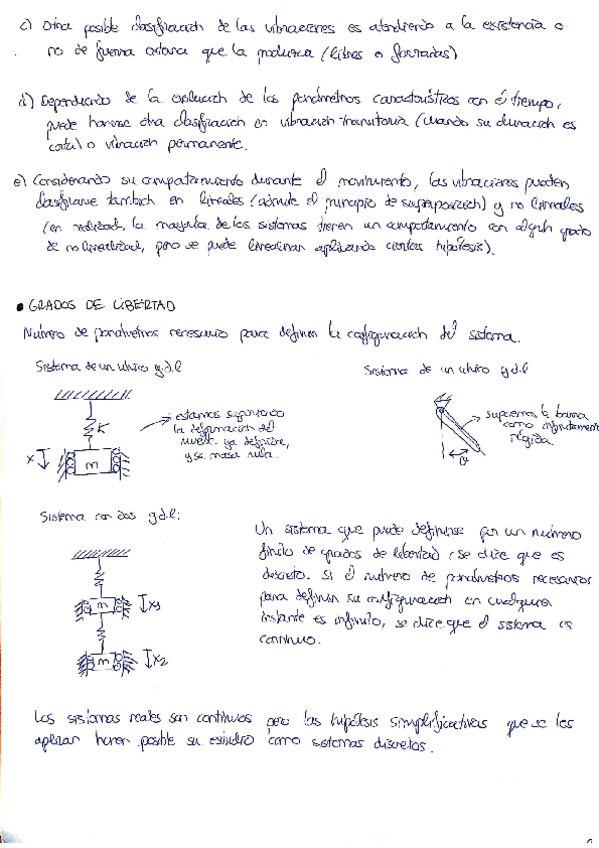 c) Otra posible clasificación de las vibraciones es atendiendo a la existencia o
no de fuerza externa que la produzca (libres o forzadas)
d) Dependiendo de la evolución de los parámetros característicos con el tiempo,
puede hacerse otra clasificación en vibración transitoria (cuando su duración es
corta) o vibración permanente.
e) Considerando su comportamiento durante el movimiento, las vibraciones pueden
clasificarse también en lineales (admite el principio de superposición) y no lineales
(en realidad, la mayoría de los sistemas tienen un comportamiento con algún grado
de no linealidad, pero se puede linealizar aplicando ciertas hipótesis).
• GRADOS DE LIBERTAD
Número de parámetros necesario para definir la configuración del sistema.
Sistema de un único g.d.l
Sistema de un único g.d.l
K
x
m
estamos suponiendo
la deformación del
muelle
y su masa nula.
suponemos la barra
como infinitamente
rígida.
θ
Sistema con dos g.d.l:
m
x1
m
x2
Un sistema que puede definirse por un número
finito de grados de libertad, se dice que es
discreto. Si el número de parámetros necesarios
para definir su configuración en cualquier
instante es infinito, se dice que el sistema es
continuo.
Los sistemas reales son continuos pero las hipótesis simplificativas que se les
aplican hacen posible su estudio como sistemas discretos.